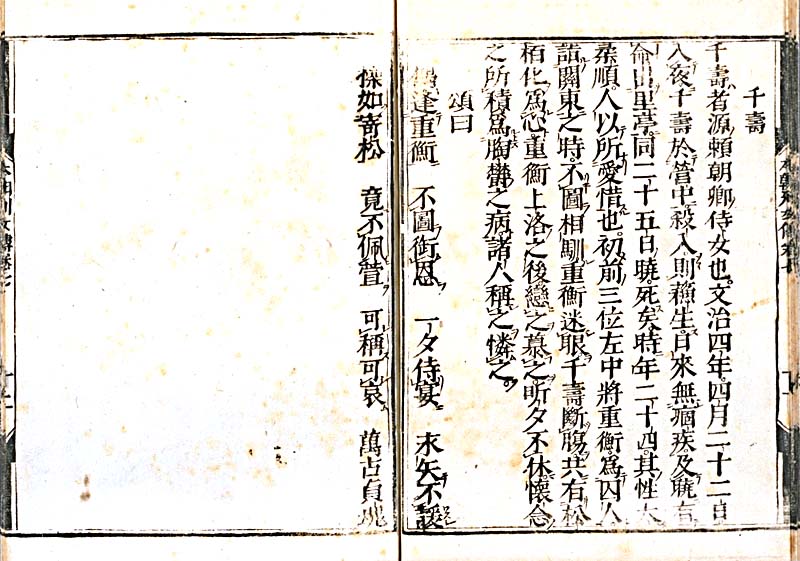 千壽
千壽者源賴朝卿侍女也文治四年四月二十二日
入夜千壽於營中殺入則蘓生日來無痼疾及曉有
命出里亭同二十五日曉死矣時年二十四其性太
柔順人以所愛惜也初前三位左中將重衡爲囚人
詣關東之時不圖相馴重衡迷眼千壽斷膓共有松
栢化爲心重衡上洛之後戀之慕之昕夕不休懷念
之所積爲胸鬱之病諸人稱之憐之
頌曰
逢重衡 不圖銜恩 一夕侍宴 末矢不諼
操如寄松 竟不佩萱 可稱可哀 萬古貞魂
本朝列女傳卷七
本朝列女傳卷七